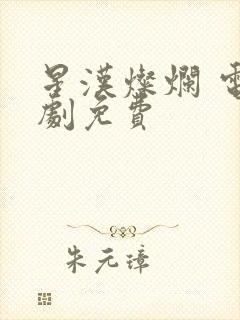 星漢燦爛 電
劇免費
朱元璋